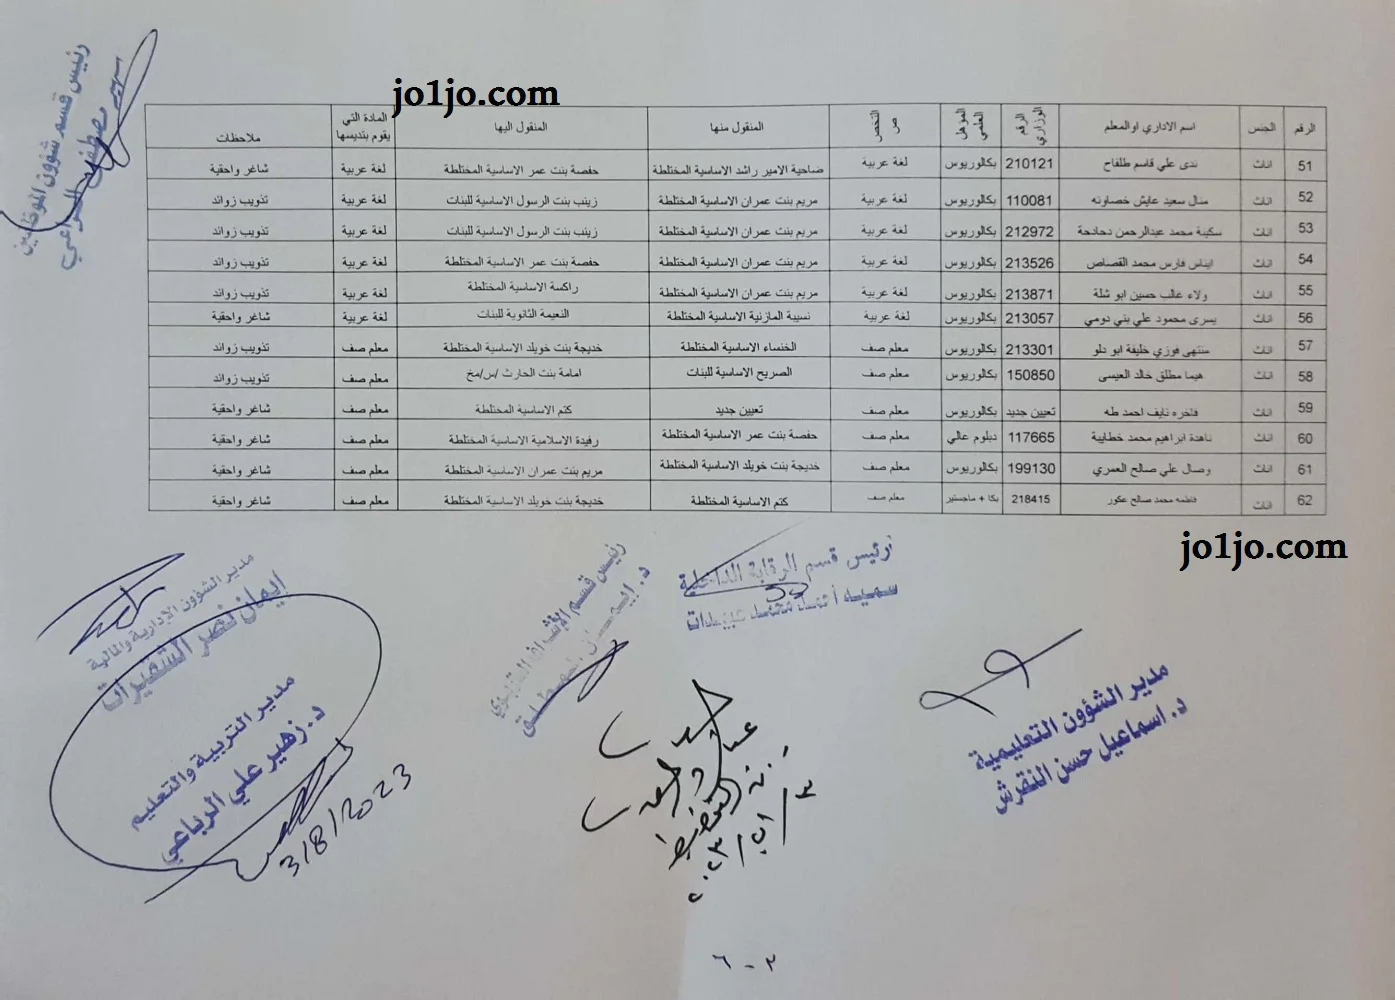 jo1jo.com
الرقم الجنس اسم الاداري اوالمعلم الرقم الوزاري المؤهل العلمي التخصص المنقول منها المنقول اليها المادة التي يقوم بتدريسها ملاحظات
51 اناث ندى علي قاسم طلفاح 210121 بكالوريوس لغة عربية ضاحية الامير راشد الاساسية المختلطة حفصة بنت عمر الاساسية المختلطة لغة عربية شاغر واحقية
52 اناث منال سعيد عايش خصاونه 110081 بكالوريوس لغة عربية مريم بنت عمران الاساسية المختلطة زينب بنت الرسول الاساسية للبنات لغة عربية تذويب زوائد
53 اناث سكينة محمد عبدالرحمن دحادحة 212972 بكالوريوس لغة عربية مريم بنت عمران الاساسية المختلطة زينب بنت الرسول الاساسية للبنات لغة عربية تذويب زوائد
54 اناث ايناس فارس محمد القصاص 213526 بكالوريوس لغة عربية مريم بنت عمران الاساسية المختلطة حفصة بنت عمر الاساسية المختلطة لغة عربية تذويب زوائد
55 اناث ولاء غالب حسين ابو شلة 213871 بكالوريوس لغة عربية مريم بنت عمران الاساسية المختلطة راكسة الاساسية المختلطة لغة عربية تذويب زوائد
56 اناث يسرى محمود علي بني دومي 213057 بكالوريوس لغة عربية نسيبة المازنية الاساسية المختلطة النعيمة الثانوية للبنات لغة عربية شاغر واحقية
57 اناث منتهى فوزي خليفة ابو دلو 213301 بكالوريوس معلم صف الخنساء الاساسية المختلطة خديجة بنت خويلد الاساسية المختلطة معلم صف تذويب زوائد
58 اناث هيما مطلق خالد العيسى 150850 بكالوريوس معلم صف الصريح الاساسية للبنات امامة بنت الحارث /س/مخ معلم صف تذويب زوائد
59 اناث فاخره نايف احمد طه تعيين جديد بكالوريوس معلم صف تعيين جديد كتم الاساسية المختلطة معلم صف شاغر واحقية
60 اناث ناهدة ابراهيم محمد خطايبة 117665 دبلوم عالي معلم صف حفصة بنت عمر الاساسية المختلطة رفيدة الاسلامية الاساسية المختلطة معلم صف شاغر واحقية
61 اناث وصال علي صالح العمري 199130 بكالوريوس معلم صف خديجة بنت خويلد الاساسية المختلطة مريم بنت عمران الاساسية المختلطة معلم صف شاغر واحقية
62 اناث فاطمه محمد صالح عكور 218415 بكا + ماجستير معلم صف كتم الاساسية المختلطة خديجة بنت خويلد الاساسية المختلطة معلم صف شاغر واحقية
jo1jo.com
رئيس قسم شؤون الموظفين
رئيس قسم الرقابة الداخلية
سميه احمد محمد عبيدات
رئيس قسم الإشراف التربوي
مدير الشؤون الإدارية والمالية
إيمان نصر الشقيرات
مدير الشؤون التعليمية
د. اسماعيل حسن النقرش
مدير التربية والتعليم
د. زهير علي الرباعي
3/8/2023
٢ - ٦